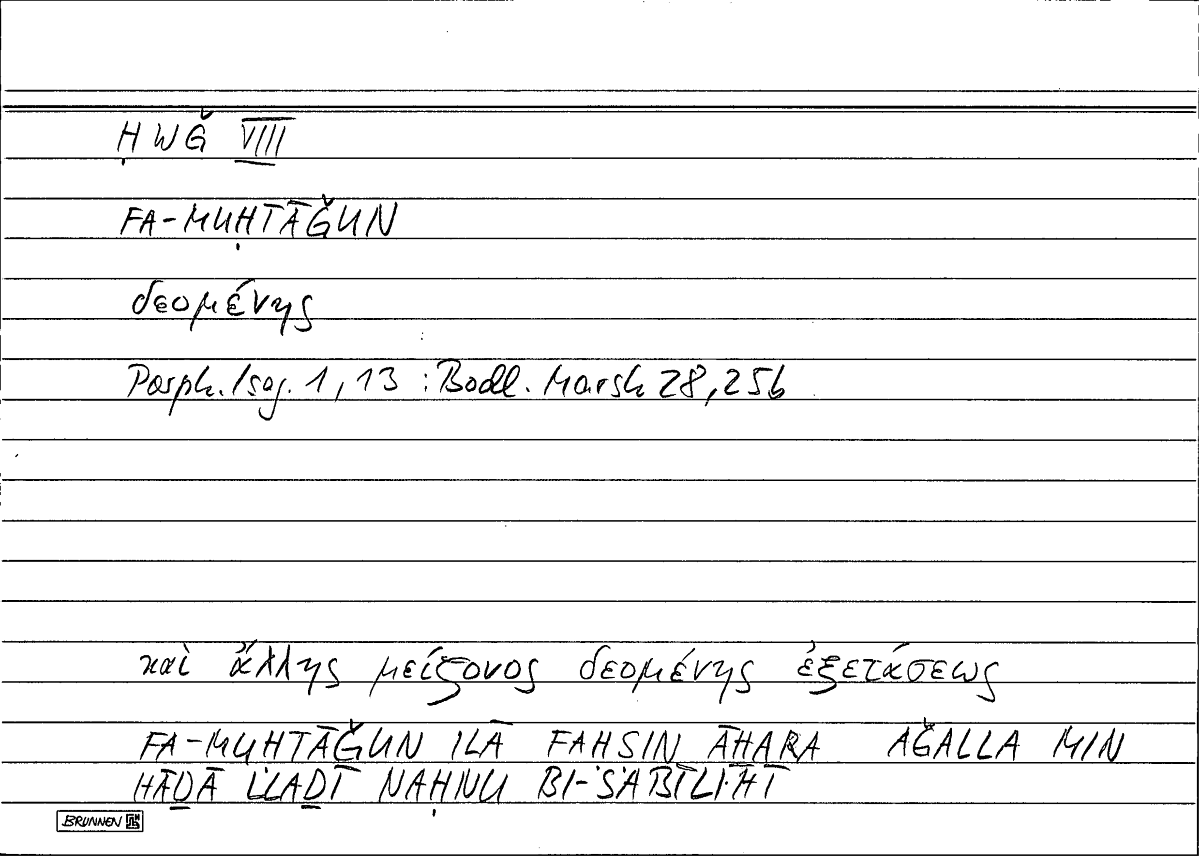 ḤWǦ VIII
FA-MUḤTĀǦUN
δεομένης
Porph. Isag. 1, 13 : Bodl. Marsh 28, 25b
καὶ ἄλλης μείζονος δεομένης ἐξετάσεως
FA-MUHTĀǦUN ILĀ FAHSIN ĀHARA AǦALLA MIN
HĀḎĀ LLAḎĪ NAḤNU BI-SABĪLIHĪ
BRUNNEN